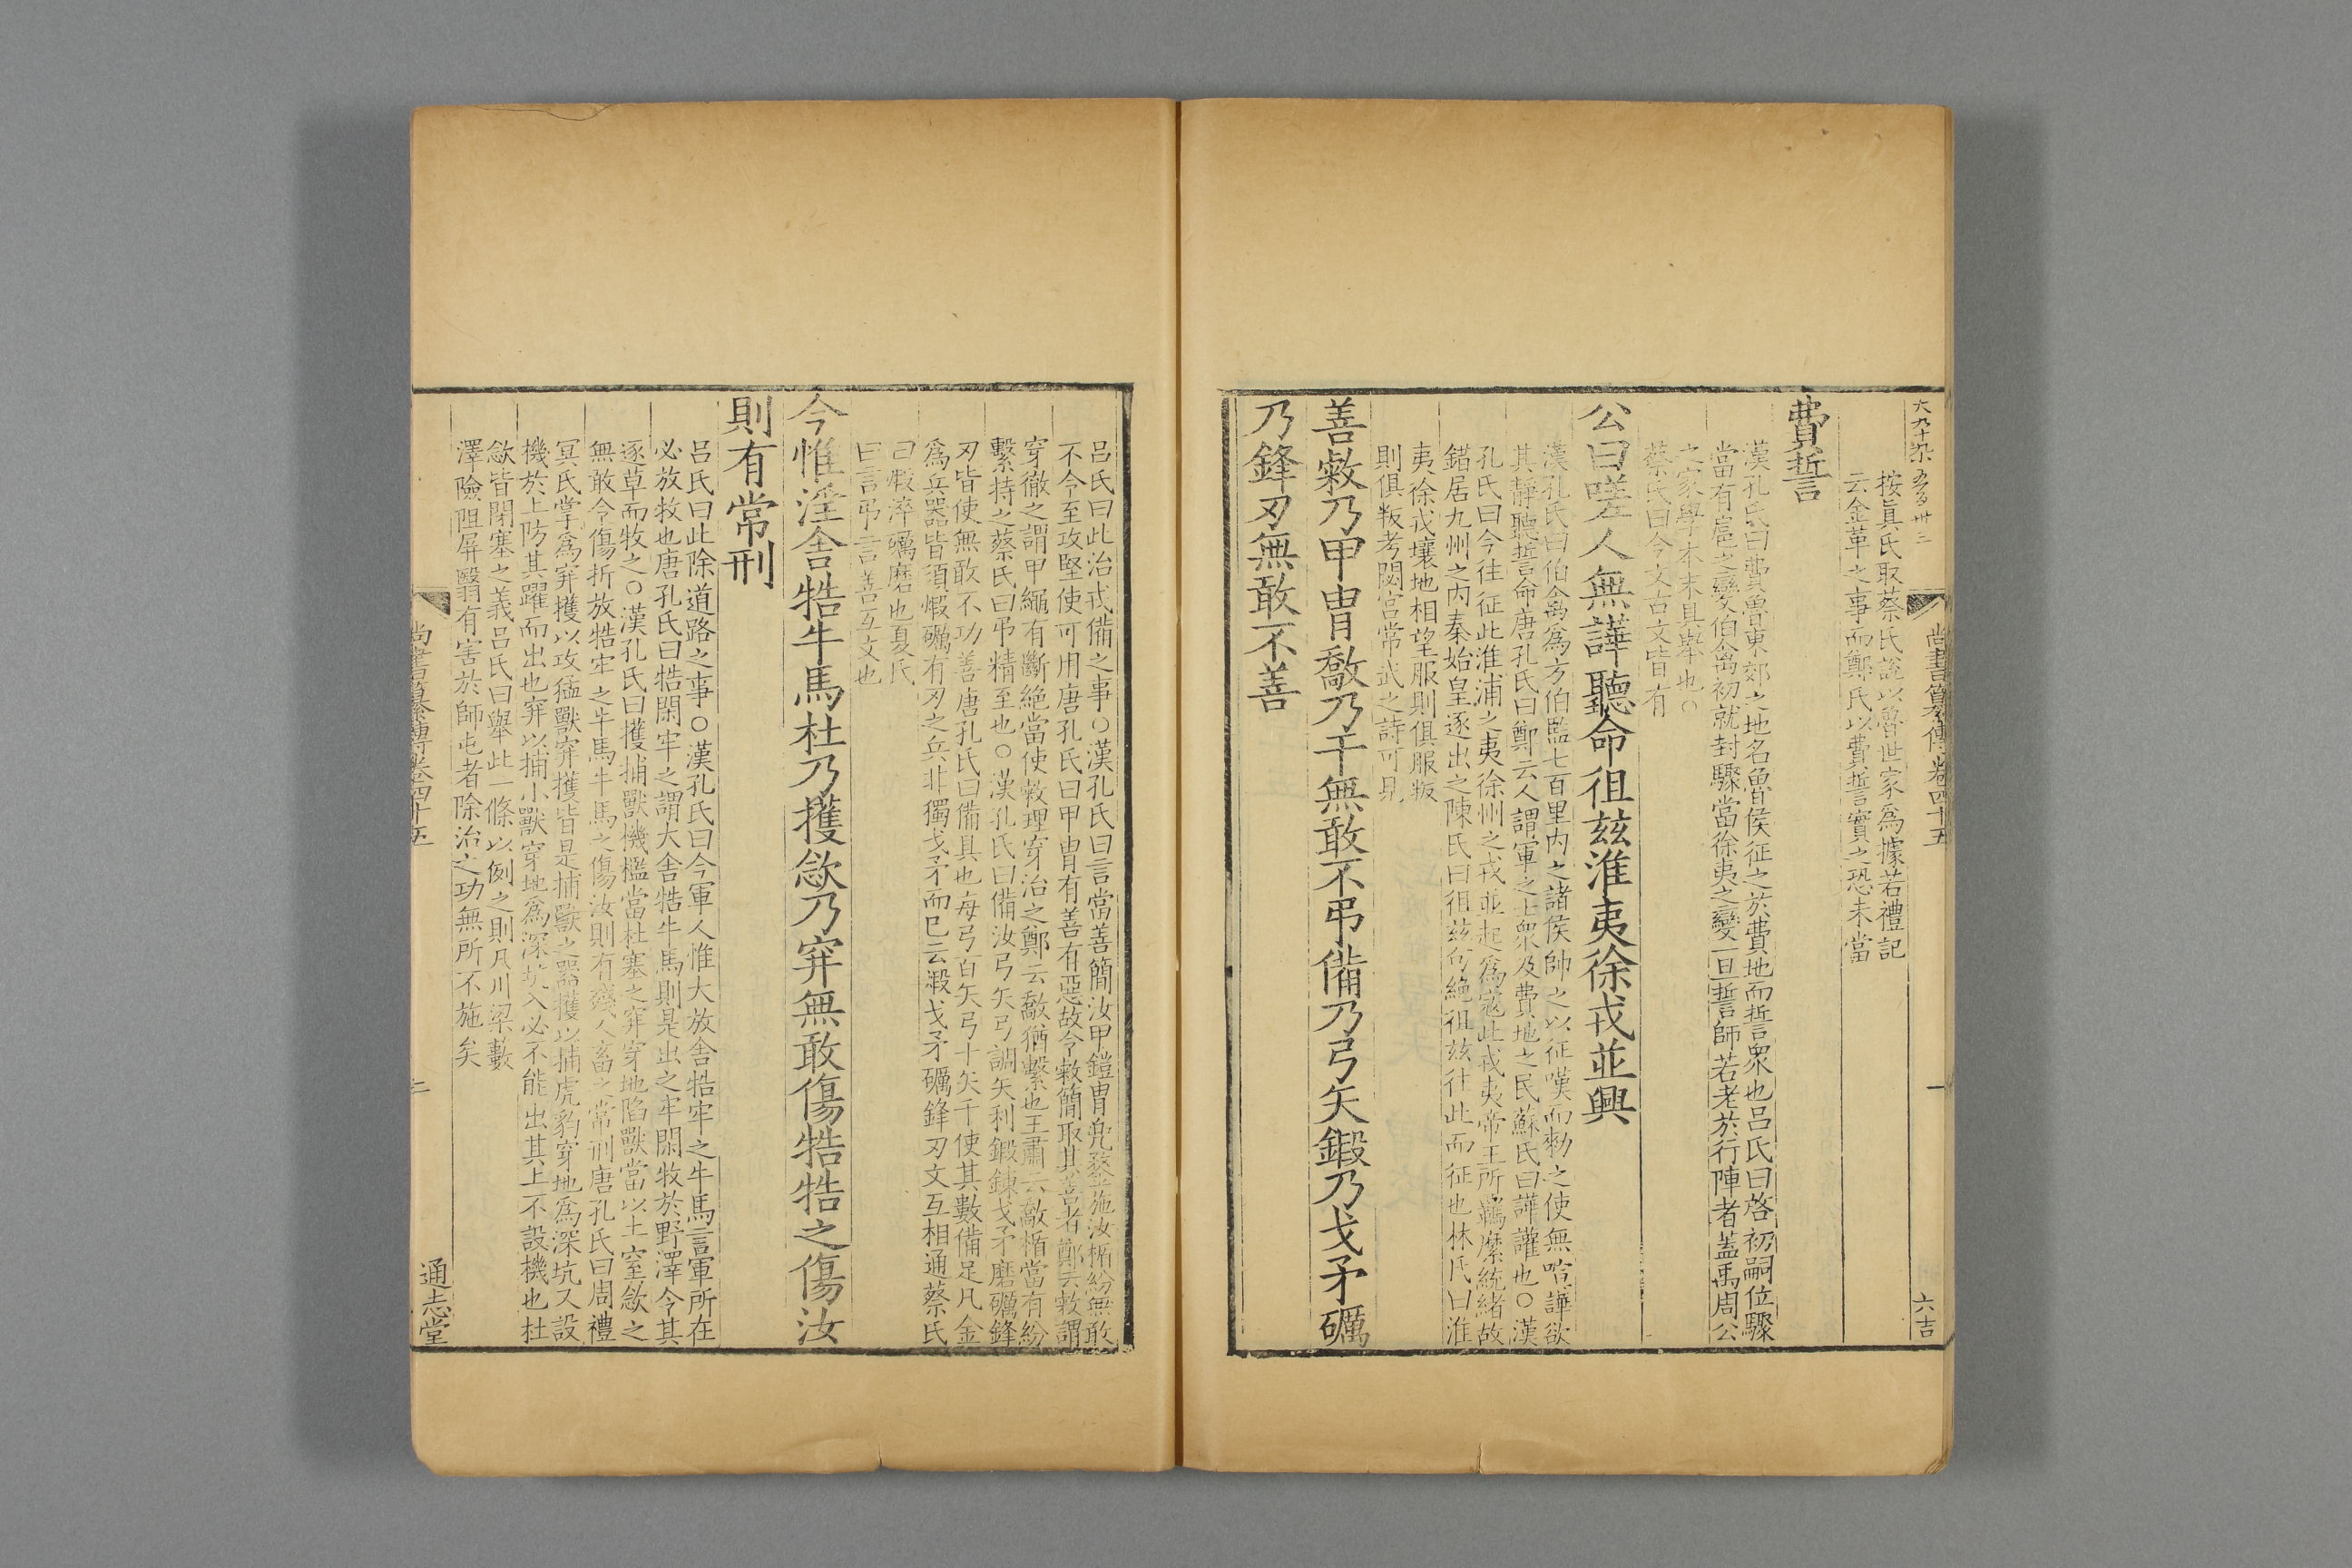 六吉
尚書纂傳卷四十五
一
按眞氏取蔡氏說以魯世家為據若禮記
云金革之事而鄭氏以費誓實之恐未當
費誓
漢孔氏曰費魯東郊之地名魯侯征之於費地而誓眾也呂氏曰啓初嗣位驟
當有扈之變伯禽初就封驟當徐夷之變一旦誓師若老於行陣者蓋禹周公
之家學本末具舉也○
蔡氏曰今文古文皆有
公曰嗟人無譁聽命徂茲淮夷徐戎並興
漢孔氏曰伯禽爲方伯監七百里內之諸侯帥之以征嘆而勑之使無喧譁欲
其靜聽誓命唐孔氏曰鄭云人謂軍之士眾及費地之民蘇氏曰譁讙也○漢
孔氏曰今往征此淮浦之夷徐州之戎並起爲寇此戎夷帝王所羈縻統緒故
錯居九州之內秦始皇逐出之陳氏曰徂茲句絕徂茲往此而征也林氏曰淮
夷徐戎壤地相望服則俱服叛
則俱叛考閟宮常武之詩可見
善敹乃甲冑敽乃干無敢不弔備乃弓矢鍛乃戈矛礪
乃鋒刃無敢不善
呂氏曰此治戎備之事○漢孔氏曰言當善簡汝甲鎧冑兜鍪施汝楯紛無敢
不令至攻堅使可用唐孔氏曰甲冑有善有惡故令敹簡取其善者鄭云敹謂
穿徹之謂甲繩有斷絕當使敹理穿治之鄭云敽猶繫也王肅云敽楯當有紛
繫持之蔡氏曰弔精至也○漢孔氏曰備汝弓矢弓調矢利鍛鍊戈矛磨礪鋒
刃皆使無敢不功善唐孔氏曰備具也每弓百矢弓十矢千使其數備足凡金
爲兵器皆須煅礪有刃之兵非獨戈矛而已云鍛戈矛礪鋒刃文互相通蔡氏
曰煅淬礪磨也夏氏
曰言弔言善互文也
今惟淫舍牿牛馬杜乃擭敜乃穽無敢傷牿牿之傷汝
則有常刑
呂氏曰此除道路之事○漢孔氏曰今軍人惟大放舍牿牢之牛馬言軍所在
必放牧也唐孔氏曰牿閑牢之謂大舍牿牛馬則是出之牢閑牧於野澤令其
逐草而牧之○漢孔氏曰擭捕獸機檻當杜塞之穽穿地陷獸當以土窒敜之
無敢令傷折放牿牢之牛馬牛馬之傷汝則有殘人畜之常刑唐孔氏曰周禮
冥氏掌爲穽擭以攻猛獸穽擭皆是捕獸之器擭以捕虎豹穿地爲深坑又設
機於上防其躍而出也穽以捕小獸穿地爲深坑入必不能出其上不設機也杜
敜皆閉塞之義呂氏曰舉此一條以例之則凡川梁藪
澤險阻屏翳有害於師屯者除治之功無所不施矣
尚書纂傳卷四十五
二
通志堂